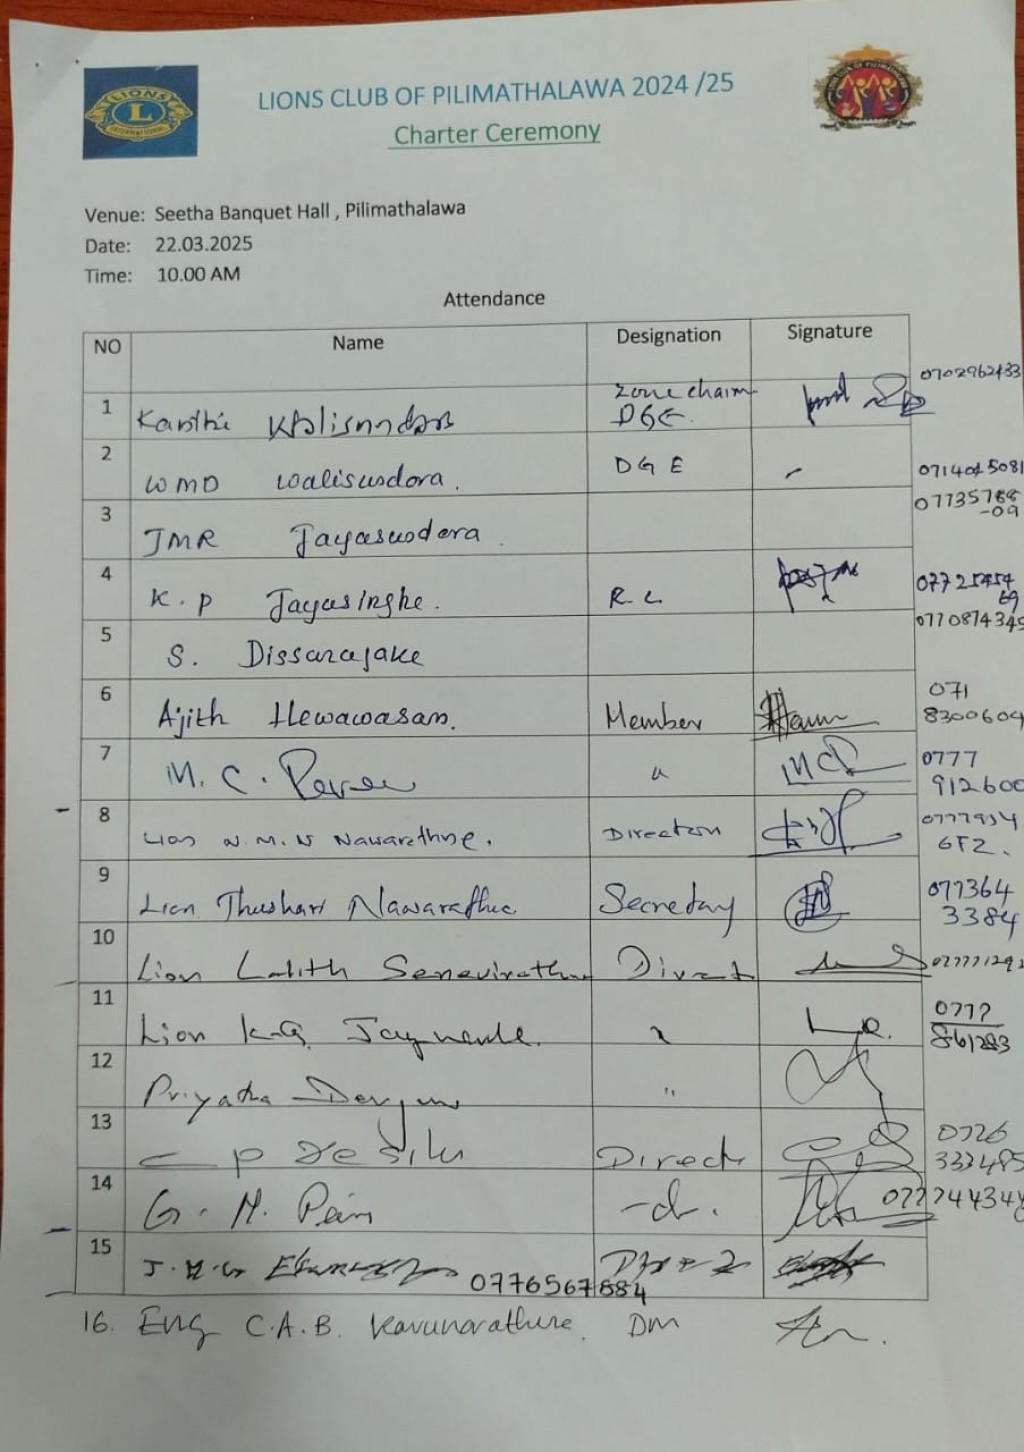 LIONS
L
INTERNATIONAL
LIONS CLUB OF PILIMATHALAWA 2024 /25
Charter Ceremony
Venue: Seetha Banquet Hall , Pilimathalawa
Date: 22.03.2025
Time: 10.00 AM
Attendance
NO Name Designation Signature
0702962433
1 Kanthi zone chairm
DGE
2 WMD Walisundora. DGE 071404 5081
3 JMR Jayasundera 07735788
-09
4 K. P Jayasinghe. R.C 07725454
69
5 S. Dissanayake 0770874345
6 Ajith Hewawasam. Member 071
8300604
7 M. C. Perera " 0777
912600
8 Lion W. M. N Nawarathne. Director 0777954
672.
9 Lion Thushari Nawarathne Secretary 077364
3384
10 Lion Lalith Senevirathne Direct
11 Lion K.G. 0777
861283
12 Priyatha "
13 P De Silva Direct 0726
333485
14 G. M. -do. 0777443
15 J. M. G 0776567884
16. Eng C.A.B. Karunarathne DM